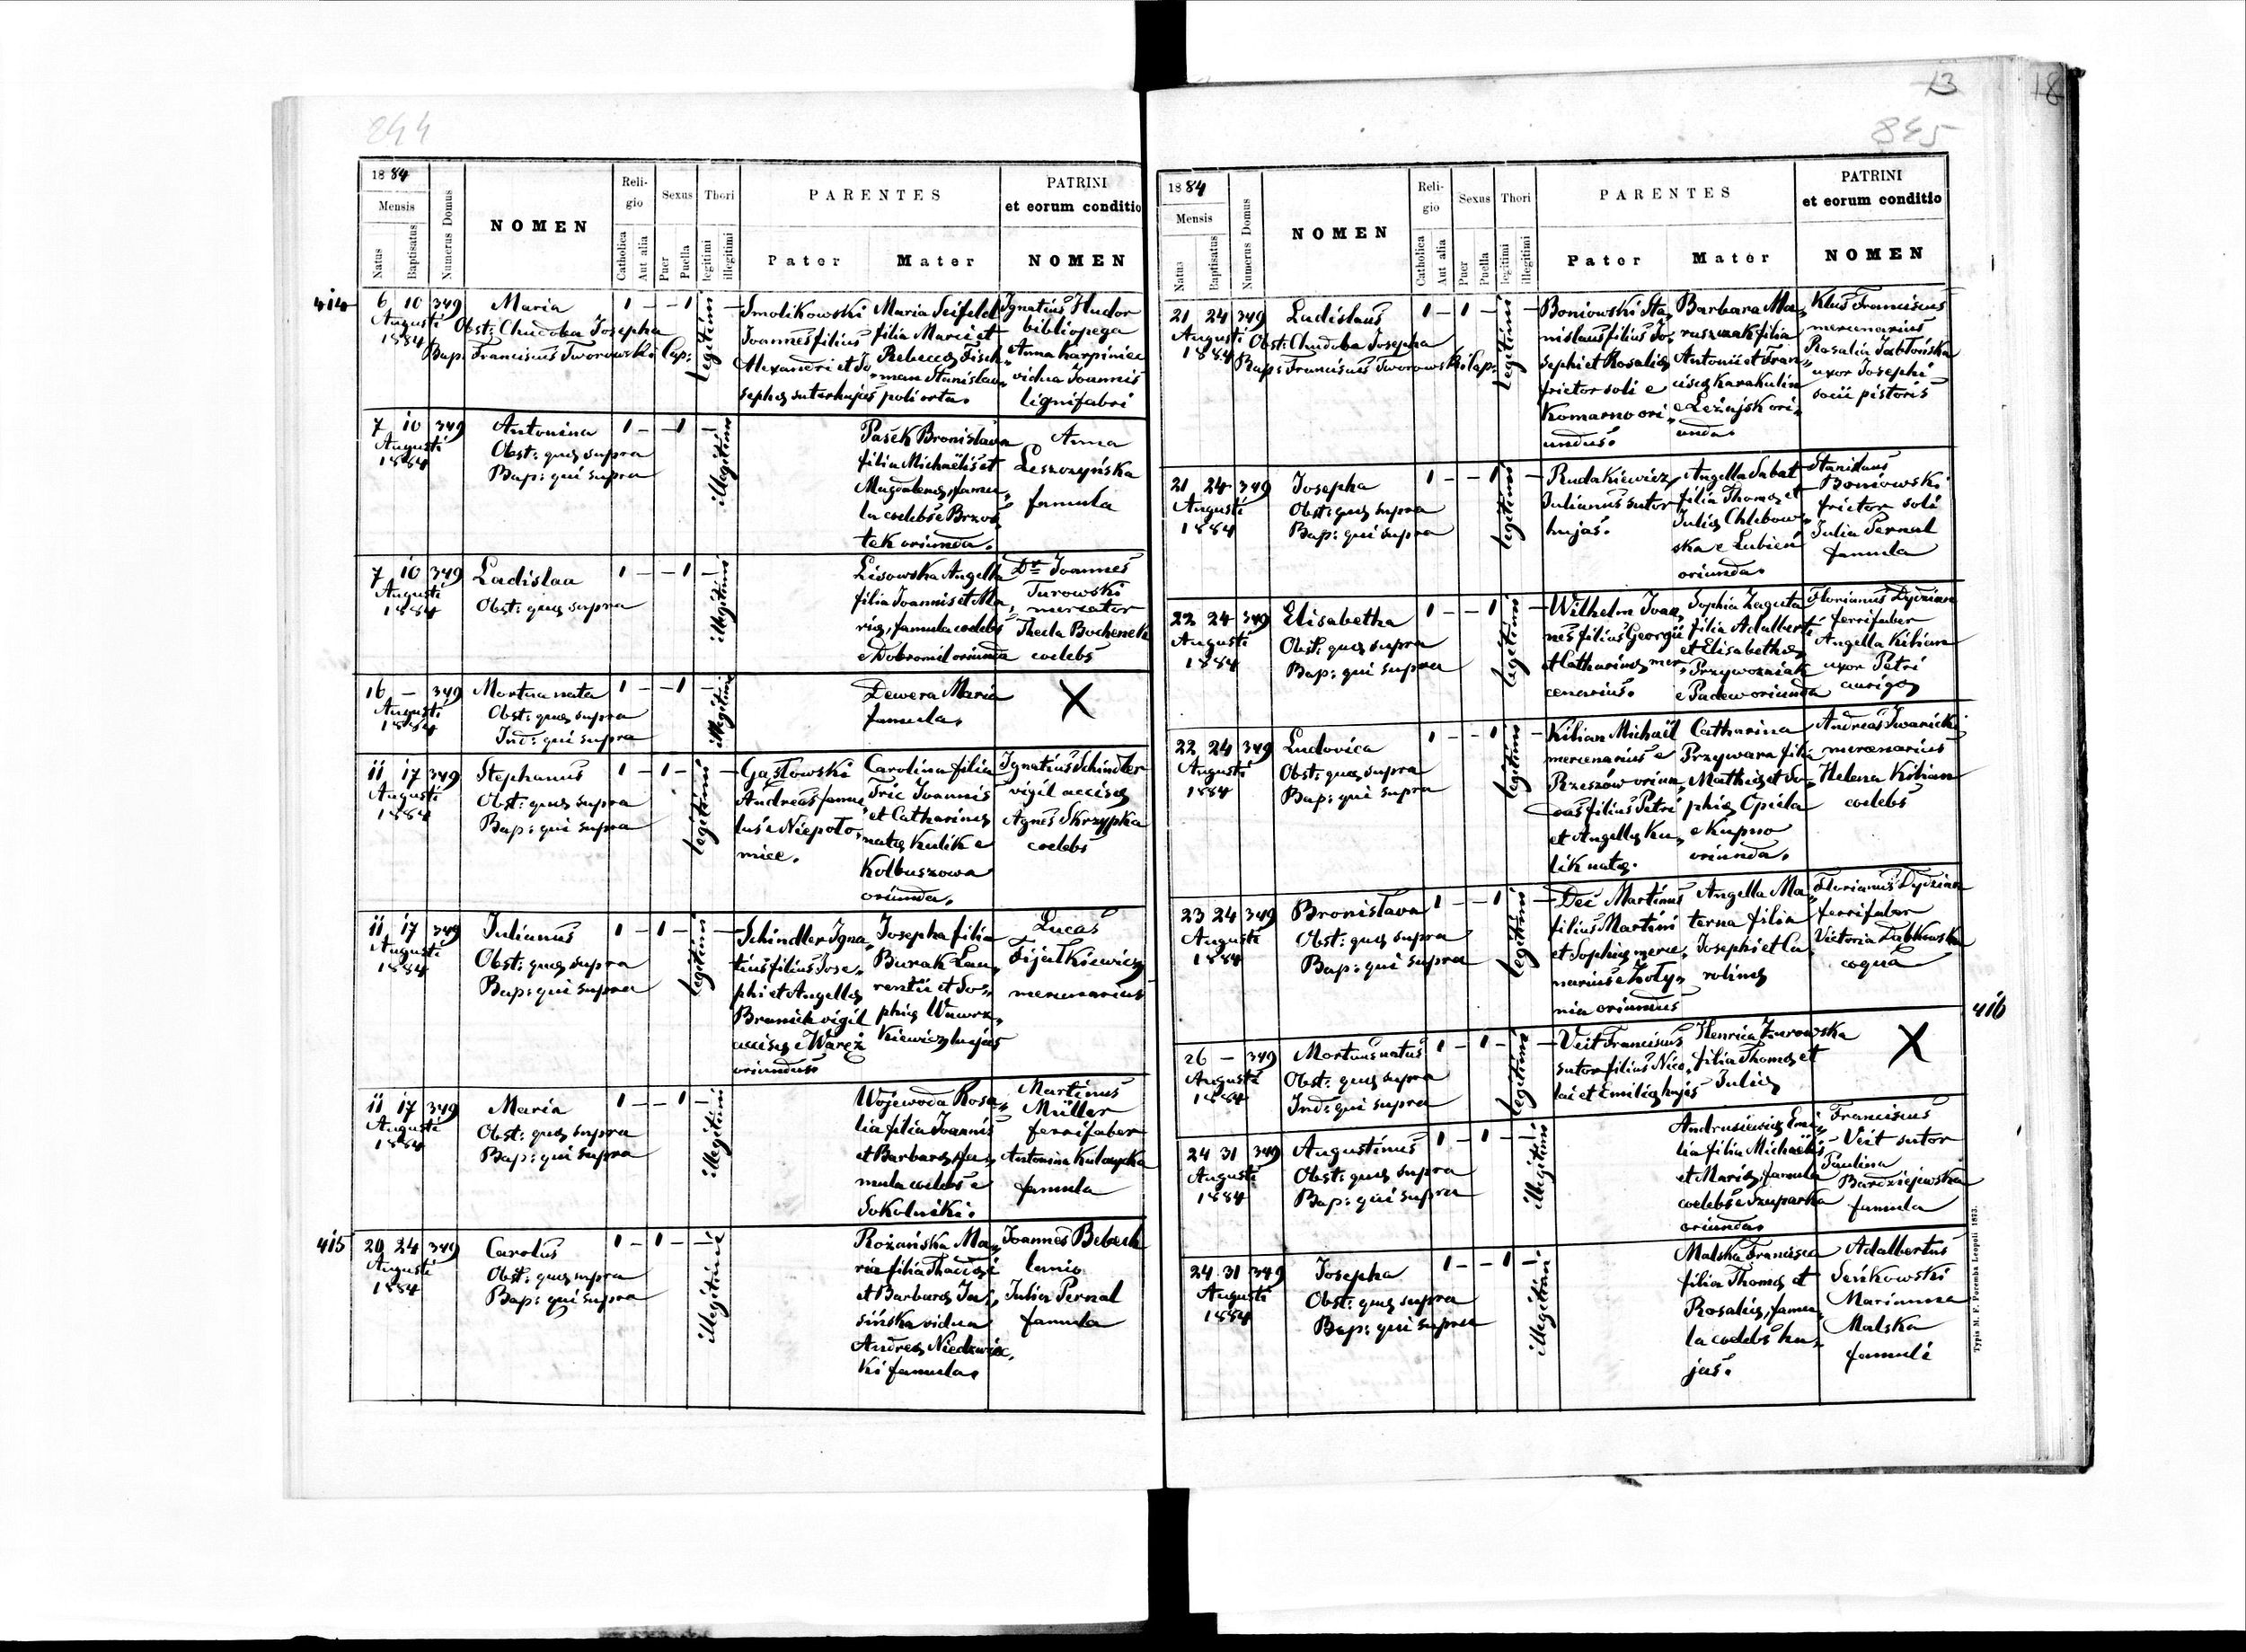 844
1884
Mensis
Natus
Baptisatus
Numerus Domus
NOMEN
Religio
Catholica
Aut alia
Sexus
Puer
Puella
Thori
legitimi
illegitimi
PARENTES
Pater
Mater
PATRINI
et eorum conditio
NOMEN
414
6 10 349
Augusti
1884
Maria
Obst: Chudoba Josepha
Bap: Franciscus Tworowski Cap:
1 - - 1
legitimi
Smolikowski
Joannes filius
Alexandri et Jo-
sepha sutor hujas
Maria Seifeld
filia Marci et
Rebecca Fisch-
man Stanislao-
poli orta.
Ignatius Hudor
bibliopega
Anna Karpiniec
vidua Joannis
lignifabri
7 10 349
Augusti
1884
Antonina
Obst: quae supra
Bap: qui supra
1 - - 1
illegitimi
Pasek Bronislava
filia Michaëlis et
Magdalena, famu-
la coelebs e Brzos-
tek oriunda.
Anna
Leszczyńska
famula
7 10 349
Augusti
1884
Ladislaa
Obst: quae supra
1 - - 1
illegitimi
Lisowska Angella
filia Joannis et Ma-
ria, famula coelebs
e Dobromil oriunda
Dr Joannes
Turowski
mercator
Thecla Bochenek
coelebs
16 - 349
Augusti
1884
Mortua nata
Obst: quae supra
Ind: qui supra
1 - - 1
illegitimi
Dewera Maria
famula.
X
11 17 349
Augusti
1884
Stephanus
Obst: quae supra
Bap: qui supra
1 - 1 -
legitimi
Gąstowski
Andreas famu-
lus e Niepoło-
mice.
Carolina filia
Fric Joannis
et Catharina
nata Kulik e
Kolbuszowa
oriunda.
Ignatius Schindler
vigil accisa
Agnes Skrzypka
coelebs
11 17 349
Augusti
1884
Julianus
Obst: quae supra
Bap: qui supra
1 - 1 -
legitimi
Schindler Igna-
tius filius Jose-
phi et Angella
Branick vigil
accisa e Waręż
oriundus
Josepha filia
Burak Lau-
rentii et So-
phia Wawrz-
kiewicz hujas
Lucas
Fijałkiewicz
mercenarius
11 17 349
Augusti
1884
Maria
Obst: quae supra
Bap: qui supra
1 - - 1
illegitimi
Wojewoda Rosa-
lia filia Joannis
et Barbara fa-
mula coelebs e
Sokolniki.
Martinus
Müller
ferrifaber
Antonina Kulczycka
famula
415
20 24 349
Augusti
1884
Carolus
Obst: quae supra
Bap: qui supra
1 - 1 -
illegitimi
Rożańska Ma-
ria filia Thaddaei
et Barbara Ja-
sińska vidua
Andrea Niedzwiec-
ki famula.
Joannes Bebech
lanio
Julia Pernal
famula
13
18
845
1884
Mensis
Natus
Baptisatus
Numerus Domus
NOMEN
Religio
Catholica
Aut alia
Sexus
Puer
Puella
Thori
legitimi
illegitimi
PARENTES
Pater
Mater
PATRINI
et eorum conditio
NOMEN
21 24 349
Augusti
1884
Ladislaus
Obst: Chudoba Josepha
Bap: Franciscus Tworowski Cap:
1 - 1 -
legitimi
Boniowski Sta-
nislaus filius Jo-
sephi et Rosalia
frictor soli e
Komarno ori-
undus.
Barbara Ma-
ruszczak filia
Antonii et Fran-
cisca Karakulin
e Leżajsk ori-
unda.
Klus Franciscus
mercenarius
Rosalia Jabłońska
uxor Josephi
socii pistoris
21 24 349
Augusti
1884
Josepha
Obst: quae supra
Bap: qui supra
1 - - 1
legitimi
Rudakiewicz
Julianus sutor
hujas.
Angella Sabat
filia Thoma et
Julia Chlebow-
ska e Lubień
oriunda.
Stanislaus
Boniowski
frictor soli
Julia Pernal
famula
22 24 349
Augusti
1884
Elisabetha
Obst: quae supra
Bap: qui supra
1 - - 1
legitimi
Wilhelm Joan-
nes filius Georgii
et Catharina mer-
cenarius.
Sophia Zaguta
filia Adalberti
et Elisabetha
Przywoźniak
e Padew oriunda
Florianus Dydziak
ferrifaber
Angella Kilian
uxor Petri
auriga
22 24 349
Augusti
1884
Ludovica
Obst: quae supra
Bap: qui supra
1 - - 1
legitimi
Kilian Michaël
mercenarius e
Rzeszów oriun-
dus filius Petri
et Angella Ku-
lik nata.
Catharina
Przywara filia
Mathia et So-
phia Opiela
e Kupno
oriunda.
Andreas Iwanicki
mercenarius
Helena Kilian
coelebs
23 24 349
Augusti
1884
Bronislava
Obst: quae supra
Bap: qui supra
1 - - 1
legitimi
Dec Martinus
filius Martini
et Sophia merce-
narius e Hoły-
nia oriundus
Angella Ma-
terna filia
Josephi et Ca-
rolina
Florianus Dydziak
ferrifaber
Victoria Dąbkowska
coqua
416
26 - 349
Augusti
1884
Mortuus natus
Obst: quae supra
Ind: qui supra
1 - 1 -
legitimi
Veit Franciscus
sutor filius Nico-
lai et Emilia hujas
Henrica Żurowska
filia Thoma et
Julia
X
24 31 349
Augusti
1884
Augustinus
Obst: quae supra
Bap: qui supra
1 - 1 -
illegitimi
Andrusiewicz Emi-
lia filia Michaëlis
et Maria, famula
coelebs e Szuparka
oriunda.
Franciscus
Veit sutor
Paulina
Bardziejewska
famula
24 31 349
Augusti
1884
Josepha
Obst: quae supra
Bap: qui supra
1 - - 1
illegitimi
Malska Francisca
filia Thoma et
Rosalia, famu-
la coelebs hu-
jas.
Adalbertus
Seńkowski
Marianna
Malska
famuli
Typis M. F. Poremba Leopoli 1873.